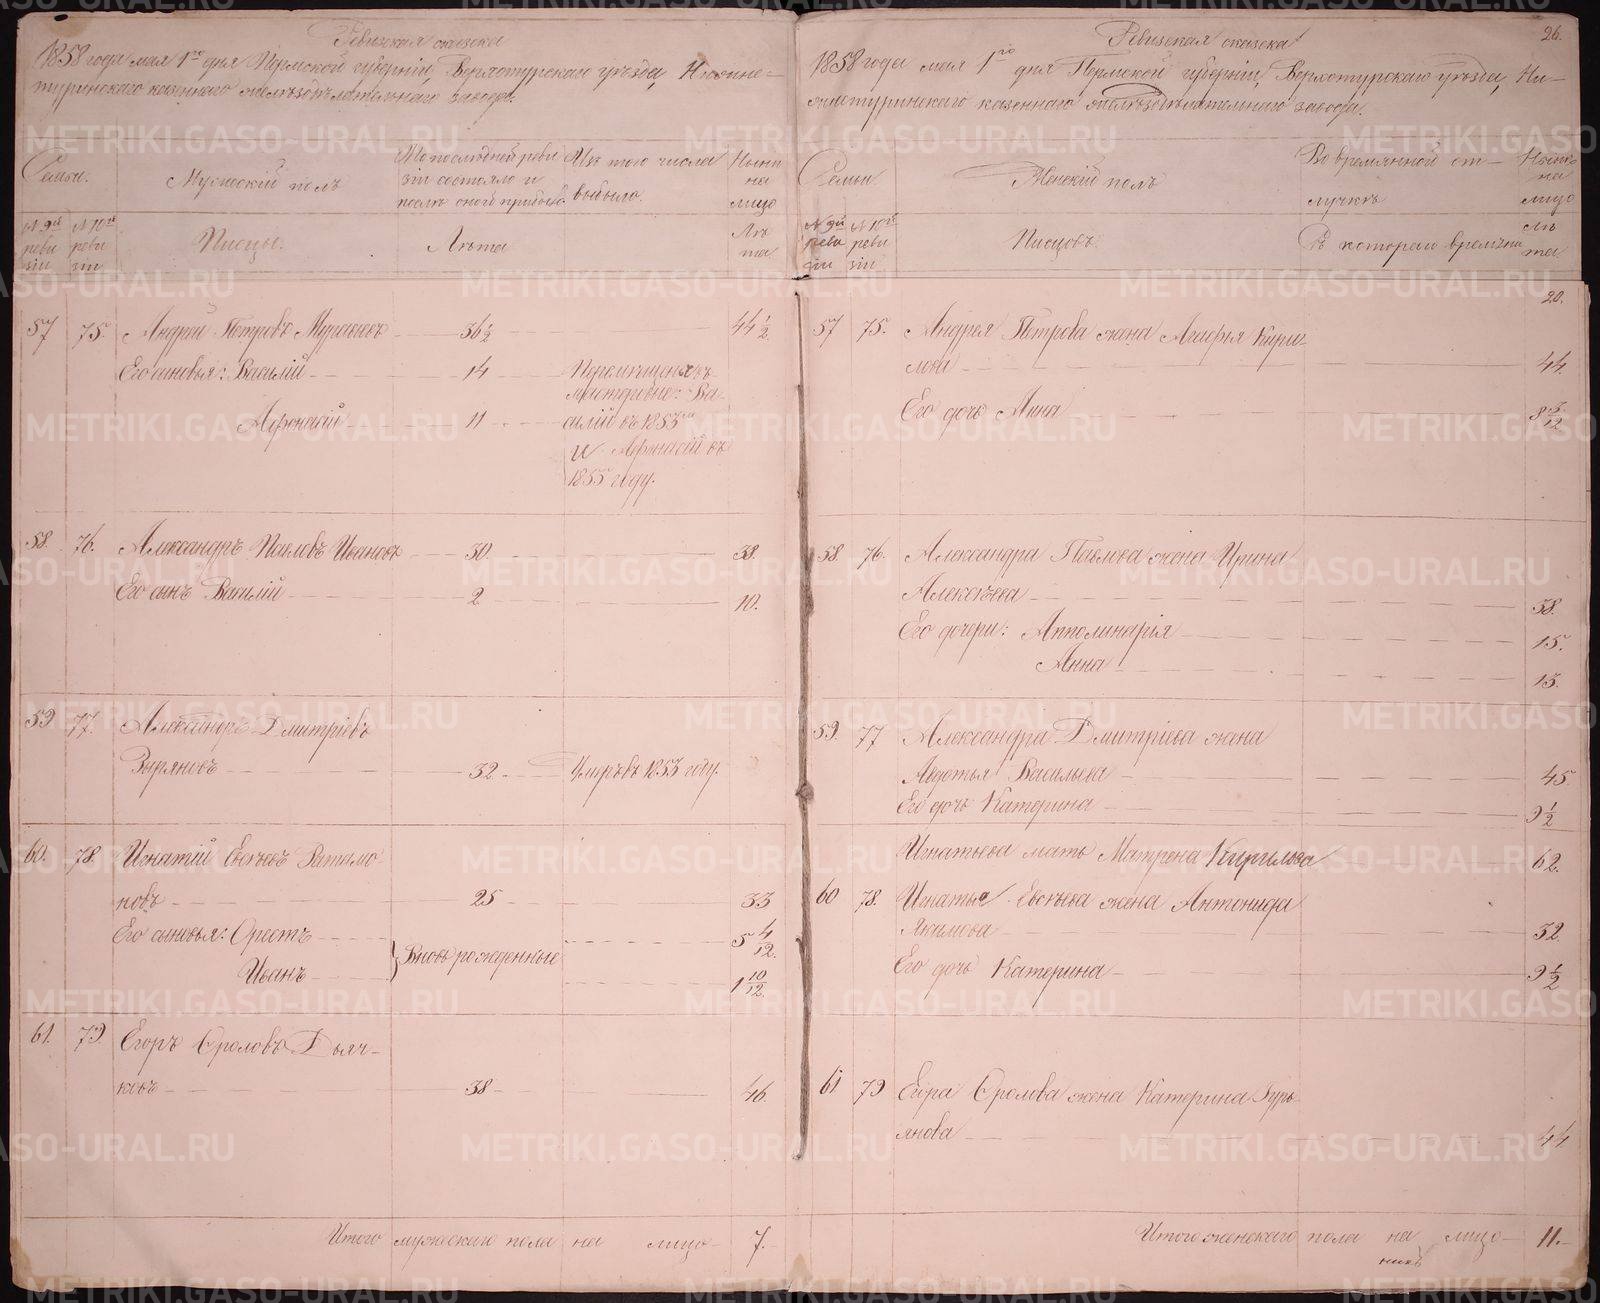 Ревизская сказка
1858 года мая 1го дня Пермской губерніи, Верхотурскаго уѣзда, Нижне-
туринскаго казеннаго желѣзодѣлательнаго завода.
Семьи.
Мужескій полъ
По последней реви
зіи состояло и
послѣ оной прибыло
Изъ того числа
выбыло.
Нынѣ
на
лицо
№ 9й
реви
зіи
№ 10й
реви
зіи
Писцы.
Лѣта
Лѣ
та
57 75. Андрей Петровъ Муравьевъ 36½ 44½
Его сыновья: Василій 14 Перемѣщены въ
мастеровые: Ва-
Афонасій 11 силій въ 1853м
и Афонасій въ
1855 году.
58. 76. Александръ Павловъ Ивановъ 30 38.
Его сынъ Василій 2 10.
59 77. Александръ Дмитріевъ
Зыряновъ 32 Умеръ въ 1853 году.
60. 78. Игнатій Евсѣевъ Ратамо
новъ 25 33
Его сыновья: Орестъ 5 4/12.
Вновь рожденные
Иванъ 1 10/12.
61. 79. Егоръ Фроловъ Дьяч-
ковъ 38 46.
Итого мужескаго пола на лицо 7.
26.
Ревизская сказка
1858 года мая 1го дня Пермской губерніи, Верхотурскаго уѣзда, Ни-
жнетуринскаго казеннаго желѣзодѣлательнаго завода.
Семьи.
Женскій полъ
Во временной от-
лучкѣ
Нынѣ
на
лицо
№ 9й
реви
зіи
№ 10й
реви
зіи
Писцовъ.
Съ котораго времени
лѣ
та
20.
57 75. Андрея Петрова жена Агафья Кири-
лова 44.
Его дочь Анна 8 3/12
58. 76. Александра Павлова жена Ирина
Алексѣева 38.
Его дочери: Апполинарія 15.
Анна 13.
59. 77 Александра Дмитріева жена
Авдотья Васильева 45
Его дочь Катерина 9½
Игнатьева мать Матрена Кирилова 62.
60 78. Игнатья Евсѣева жена Антонида
Якимова 32.
Его дочь Катерина 9½
61 79 Егора Фролова жена Катерина Гурь-
янова 44
Итого женскаго пола на лицо 11.